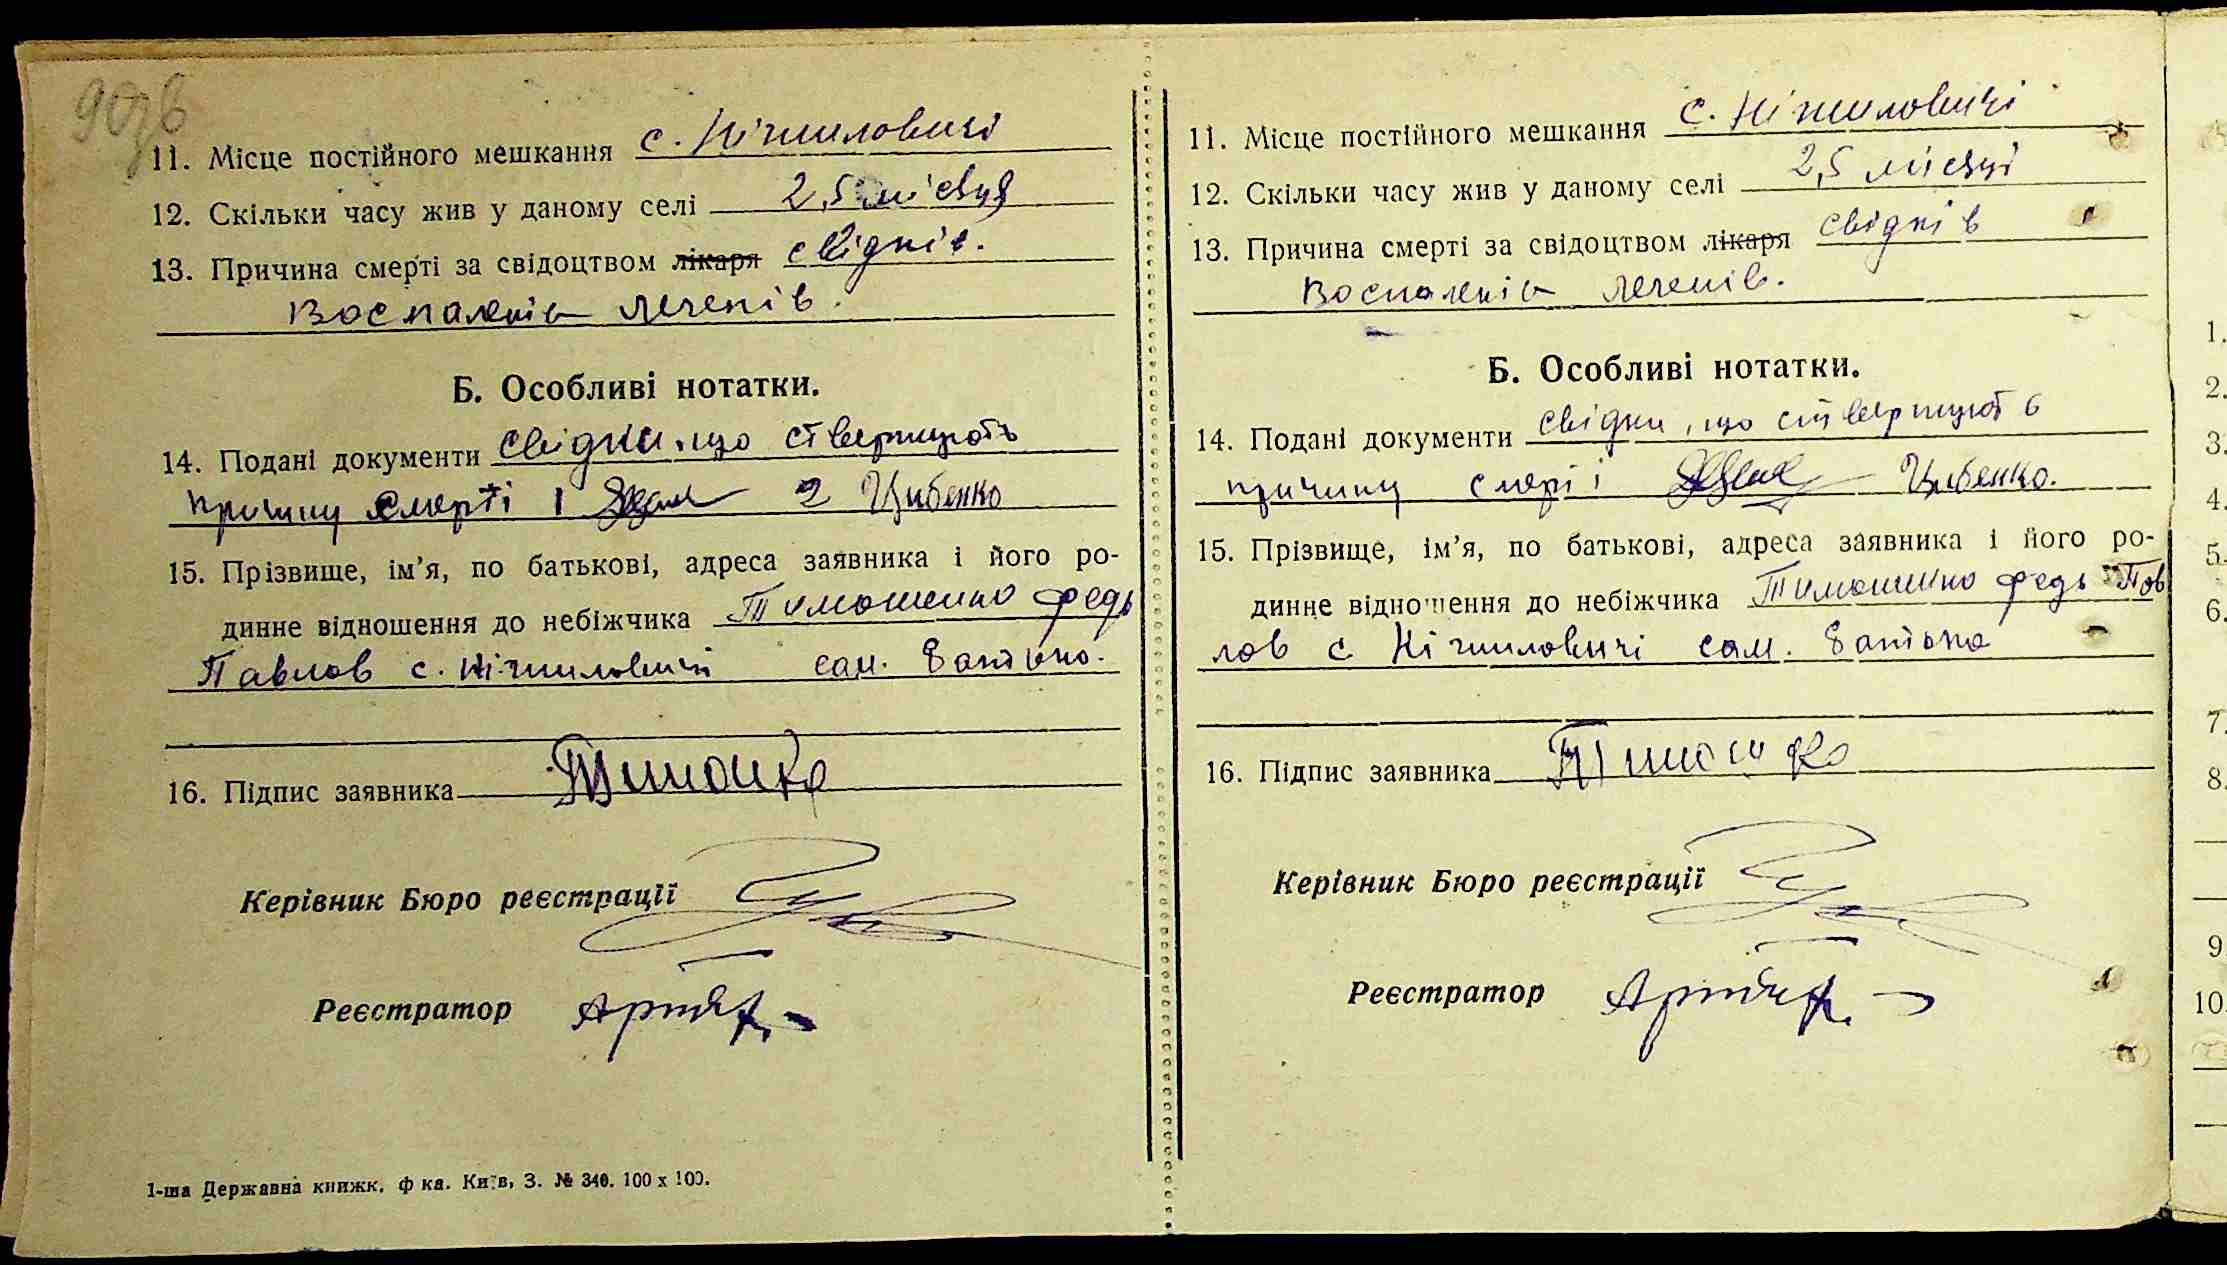 90зв
11. Місце постійного мешкання с. Ніжиловичі
12. Скільки часу жив у даному селі 2,5 місяця
13. Причина смерті за свідоцтвом лікаря свідків.
Воспаленія легенів.
Б. Особливі нотатки.
14. Подані документи свідки, що ствержують
причину смерті 1 2 Цибенко
15. Прізвище, ім'я, по батькові, адреса заявника і його ро-
динне відношення до небіжчика Тимошенко Федь
Павлов с. Ніжиловичі сам. батько.
16. Підпис заявника
Керівник Бюро реєстрації
Реєстратор
1-ша Державна книжк. ф-ка. Київ, З. № 340. 100 x 100.
11. Місце постійного мешкання с. Ніжиловичі
12. Скільки часу жив у даному селі 2,5 місяці
13. Причина смерті за свідоцтвом лікаря свідків
Воспаленія легенів.
Б. Особливі нотатки.
14. Подані документи свідки, що ствержують
причину смерті Цибенко.
15. Прізвище, ім'я, по батькові, адреса заявника і його ро-
динне відношення до небіжчика Тимошенко Федь Пав
лов с Ніжиловичі сам. батько
16. Підпис заявника
Керівник Бюро реєстрації
Реєстратор
1.
2.
3.
4.
5.
6.
7.
8.
9
10.